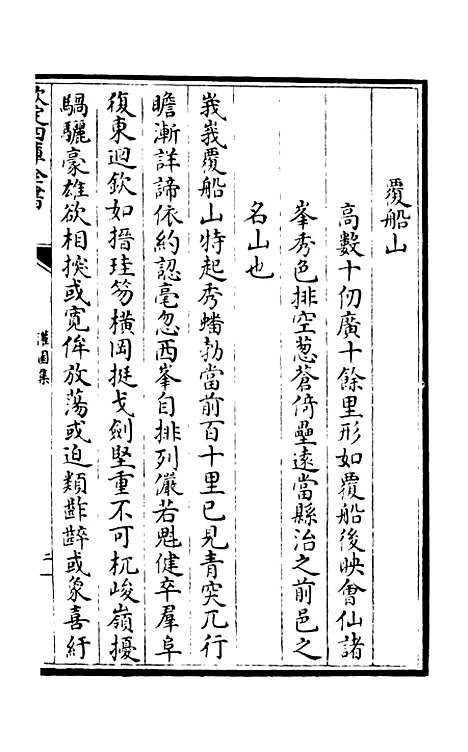 覆船山
高數十仞廣十餘里形如覆船後映會仙諸
峯秀色排空葱蒼倚壘遠當縣治之前邑之
名山也
峩峩覆船山特起秀蟠勃當前百十里已見青突兀行
瞻漸詳諦依約認毫忽西峯自排列儼若魁健卒羣阜
復東迴欽如搢珪笏橫岡挺戈劍堅重不可杌峻嶺擾
騧驪豪雄欲相捘或寛侔放蕩或迫類齚齰或象喜紓
欽定四庫全書
灌園集
二